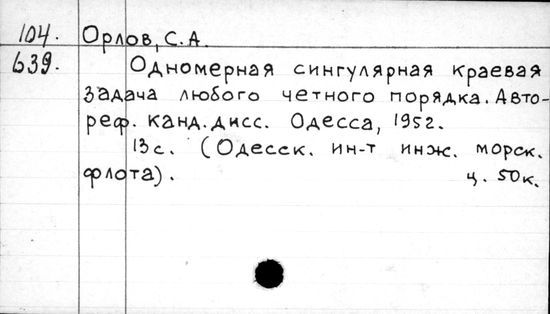 104. Орлов, С.А.
639. Одномерная сингулярная краевая
задача любого четного порядка. Авто-
реф. канд. дисс. Одесса, 1952.
13 с. (Одесск. ин-т инж. морск.
флота). ц. 50к.